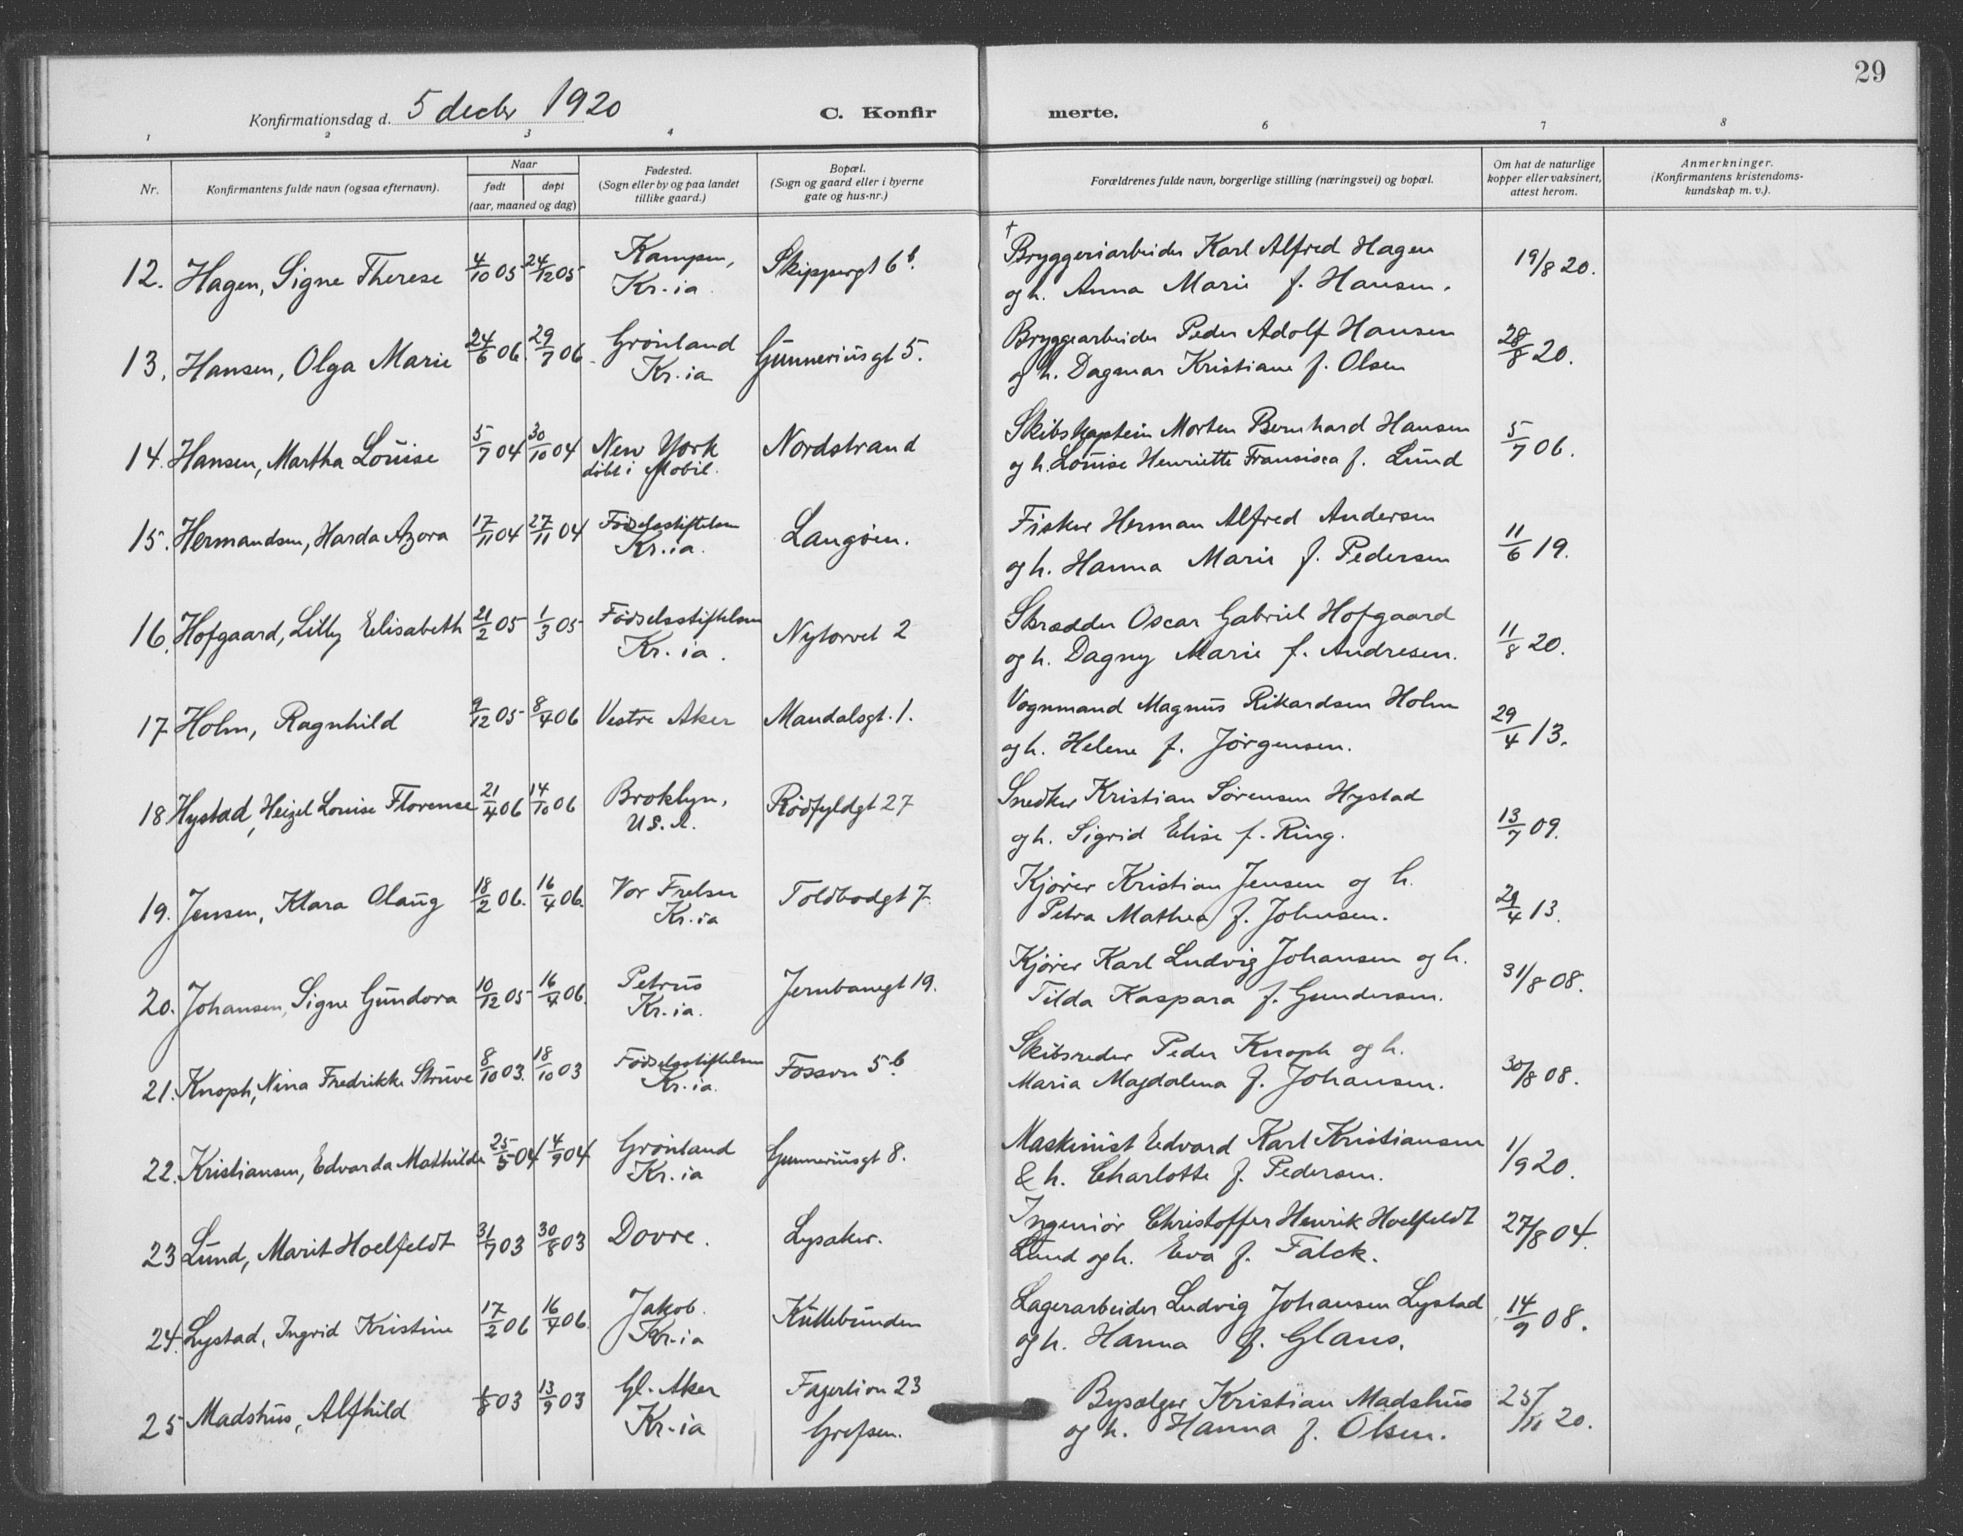 29
Konfirmationsdag d. 5 decbr 1920
C. Konfir merte.
1 2 3 4 6 7 8
Nr.
Konfirmantens fulde navn (ogsaa efternavn).
Naar
født døpt
(aar, maaned og dag)
Fødested.
(Sogn eller by og paa landet
tillike gaard.)
Bopæl.
(Sogn og gaard eller i byerne
gate og hus-nr.)
Forældrenes fulde navn, borgerlige stilling (næringsvei) og bopæl.
Om hat de naturlige
kopper eller vaksinert,
attest herom.
Anmerkninger.
(Konfirmantens kristendoms-
kundskap m. v.).
12. Hagen, Signe Therese 4/10 05 24/12 05 Kampen, Kr.ia. Skippergt 6b.
† Bryggeriarbeider Karl Alfred Hagen
og h. Anna Marie f. Hansen.
19/8 20.
13. Hansen, Olga Marie 24/6 06. 29/7 06 Grönland Kr.ia Gunneriusgt 5.
Bryggearbeider Peder Adolf Hansen
og h. Dagmar Kristiane f. Olsen
28/8 20.
14. Hansen, Martha Louise 5/7 04 30/10 04 New York döbt i Mobil. Nordstrand
Skibskaptein Morten Bernhard Hansen
og h. Louise Henriette Fransisca f. Lund
5/7 06.
15. Hermandsen, Harda Azora 17/11 04 27/11 04 Födselsstiftelsen Kr.ia. Langöien.
Fisker Herman Alfred Andersen
og h. Hanna Marie f. Pedersen
11/6 19.
16. Hofgaard, Lilly Elisabeth 21/2 05 1/3 05 Födselsstiftelsen Kr.ia. Nytorvet 2
Skrædder Oscar Gabriel Hofgaard
og h. Dagny Marie f. Andresen.
11/8 20.
17. Holm, Ragnhild 9/12 05 8/4 06 Vestre Aker Mandalsgt. 1.
Vognmand Magnus Rikardsen Holm
og h. Helene f. Jörgensen.
29/4 13.
18 Hystad, Heizel Louise Florense 21/4 06 14/10 06 Broklyn, U.S.A. Rödfyldgt 27
Snedker Kristian Sörensen Hystad
og h. Sigrid Elise f. Ring.
13/7 09.
19. Jensen, Klara Olaug 18/2 06. 16/4 06. Vor Frelser Kr.ia Toldbodgt 7.
Kjörer Kristian Jensen og h.
Petra Mathea f. Johnsen.
29/4 13.
20. Johansen, Signe Gundora 10/12 05 16/4 06. Petrus Kr.ia. Jernbanegt 19.
Kjörer Karl Ludvig Johansen og h.
Tilda Kaspara f. Gundersen.
31/8 08.
21. Knoph, Nina Fredrikke Struve 8/10 03. 18/10 03 Födselsstiftelsen Kr.ia. Fossvn 5b.
Skibsreder Peder Knoph og h.
Maria Magdalena f. Johansen.
30/8 08.
22. Kristiansen, Edvarda Mathilde 25/5 04 4/9 04 Grönland Kr.ia Gunneriusgt 8.
Maskinist Edvard Karl Kristiansen
& h. Charlotte f. Pedersen.
1/9 20.
23 Lund, Marit Hoelfeldt 31/7 03 30/8 03 Dovre. Lysaker.
Ingeniör Christoffer Henrik Hoelfeldt
Lund og h. Eva f. Falck.
27/8 04.
24. Lystad, Ingrid Kristine 17/2 06 16/4 06. Jakob. Kr.ia Kullebunden
Lagerarbeider Ludvig Johansen Lystad
og h. Hanna f. Glans.
14/9 08.
25 Madshus, Alfhild 1/8 03 13/9 03 Gl. Aker Kr.ia Fagerlion 23 Grefsen.
Bysælger Kristian Madshus
og h. Hanna f. Olsen.
25/11 20.